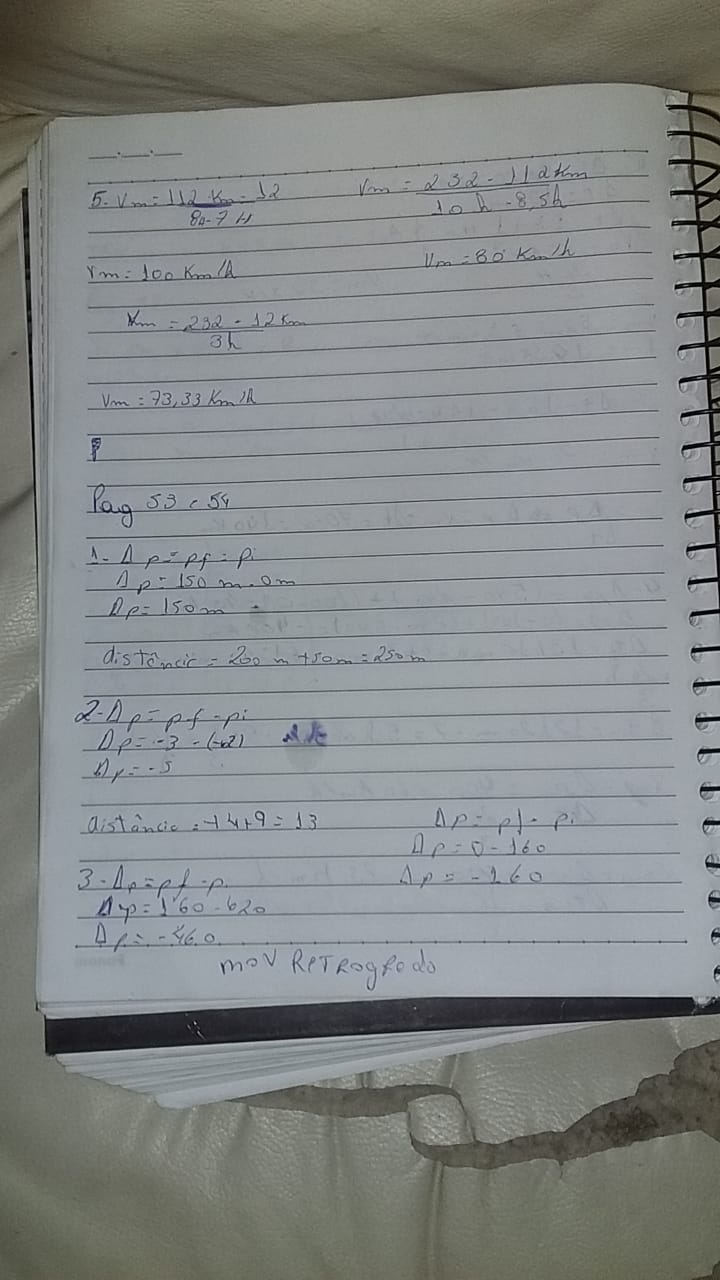 5- Vm = 112 Km - 12
8h - 7 H
Vm = 232 - 112 Km
10 h - 8,5h
Vm = 100 Km/h
Vm = 80 Km/h
Vm = 232 - 12 Km
3h
Vm = 73,33 Km/h
Pag 53 e 54
1- Δp = pf - pi
Δp = 150 m - 0m
Δp = 150 m
distância = 200 m + 50 m = 250 m
2- Δp = pf - pi
Δp = -3 - (+2)
Δp = -5
distância = +4+9 = 13
3- Δp = pf - pi
Δp = 160 - 620
Δp = -460
Δp = pf - pi
Δp = 0 - 160
Δp = -160
mov Retrogrado